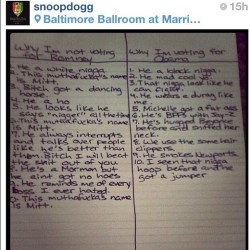 snoopdogg
Baltimore Ballroom at Marri...
15h
Why I'm not voting
for Romney
1. He a white nigga
2. This muthafucka's name
is Mitt.
3. Bitch got a dancing
4. He a ho
5. He looks like he
says "nigger" all the time
is Mitt.
7. He always interrupts
and talks over people
like he's better than
them. Bitch I will beat
the shit out of you.
8. He's a Mormon but
he aint got no hoes
9. He reminds me of every
boss I ever hated.
10. This muthafucka's name
is Mitt.
Why I'm voting for
Obama
1. He a black nigga.
3. That nigga look like he
can
6. He's BFF's with Jay-Z
7. He's hugged Beyonce
before and sniffed her
neck.
8. We use the same hair
clippers.
9. He smokes Newports
10. I seen that nigga
hoop before and he
got a jumper